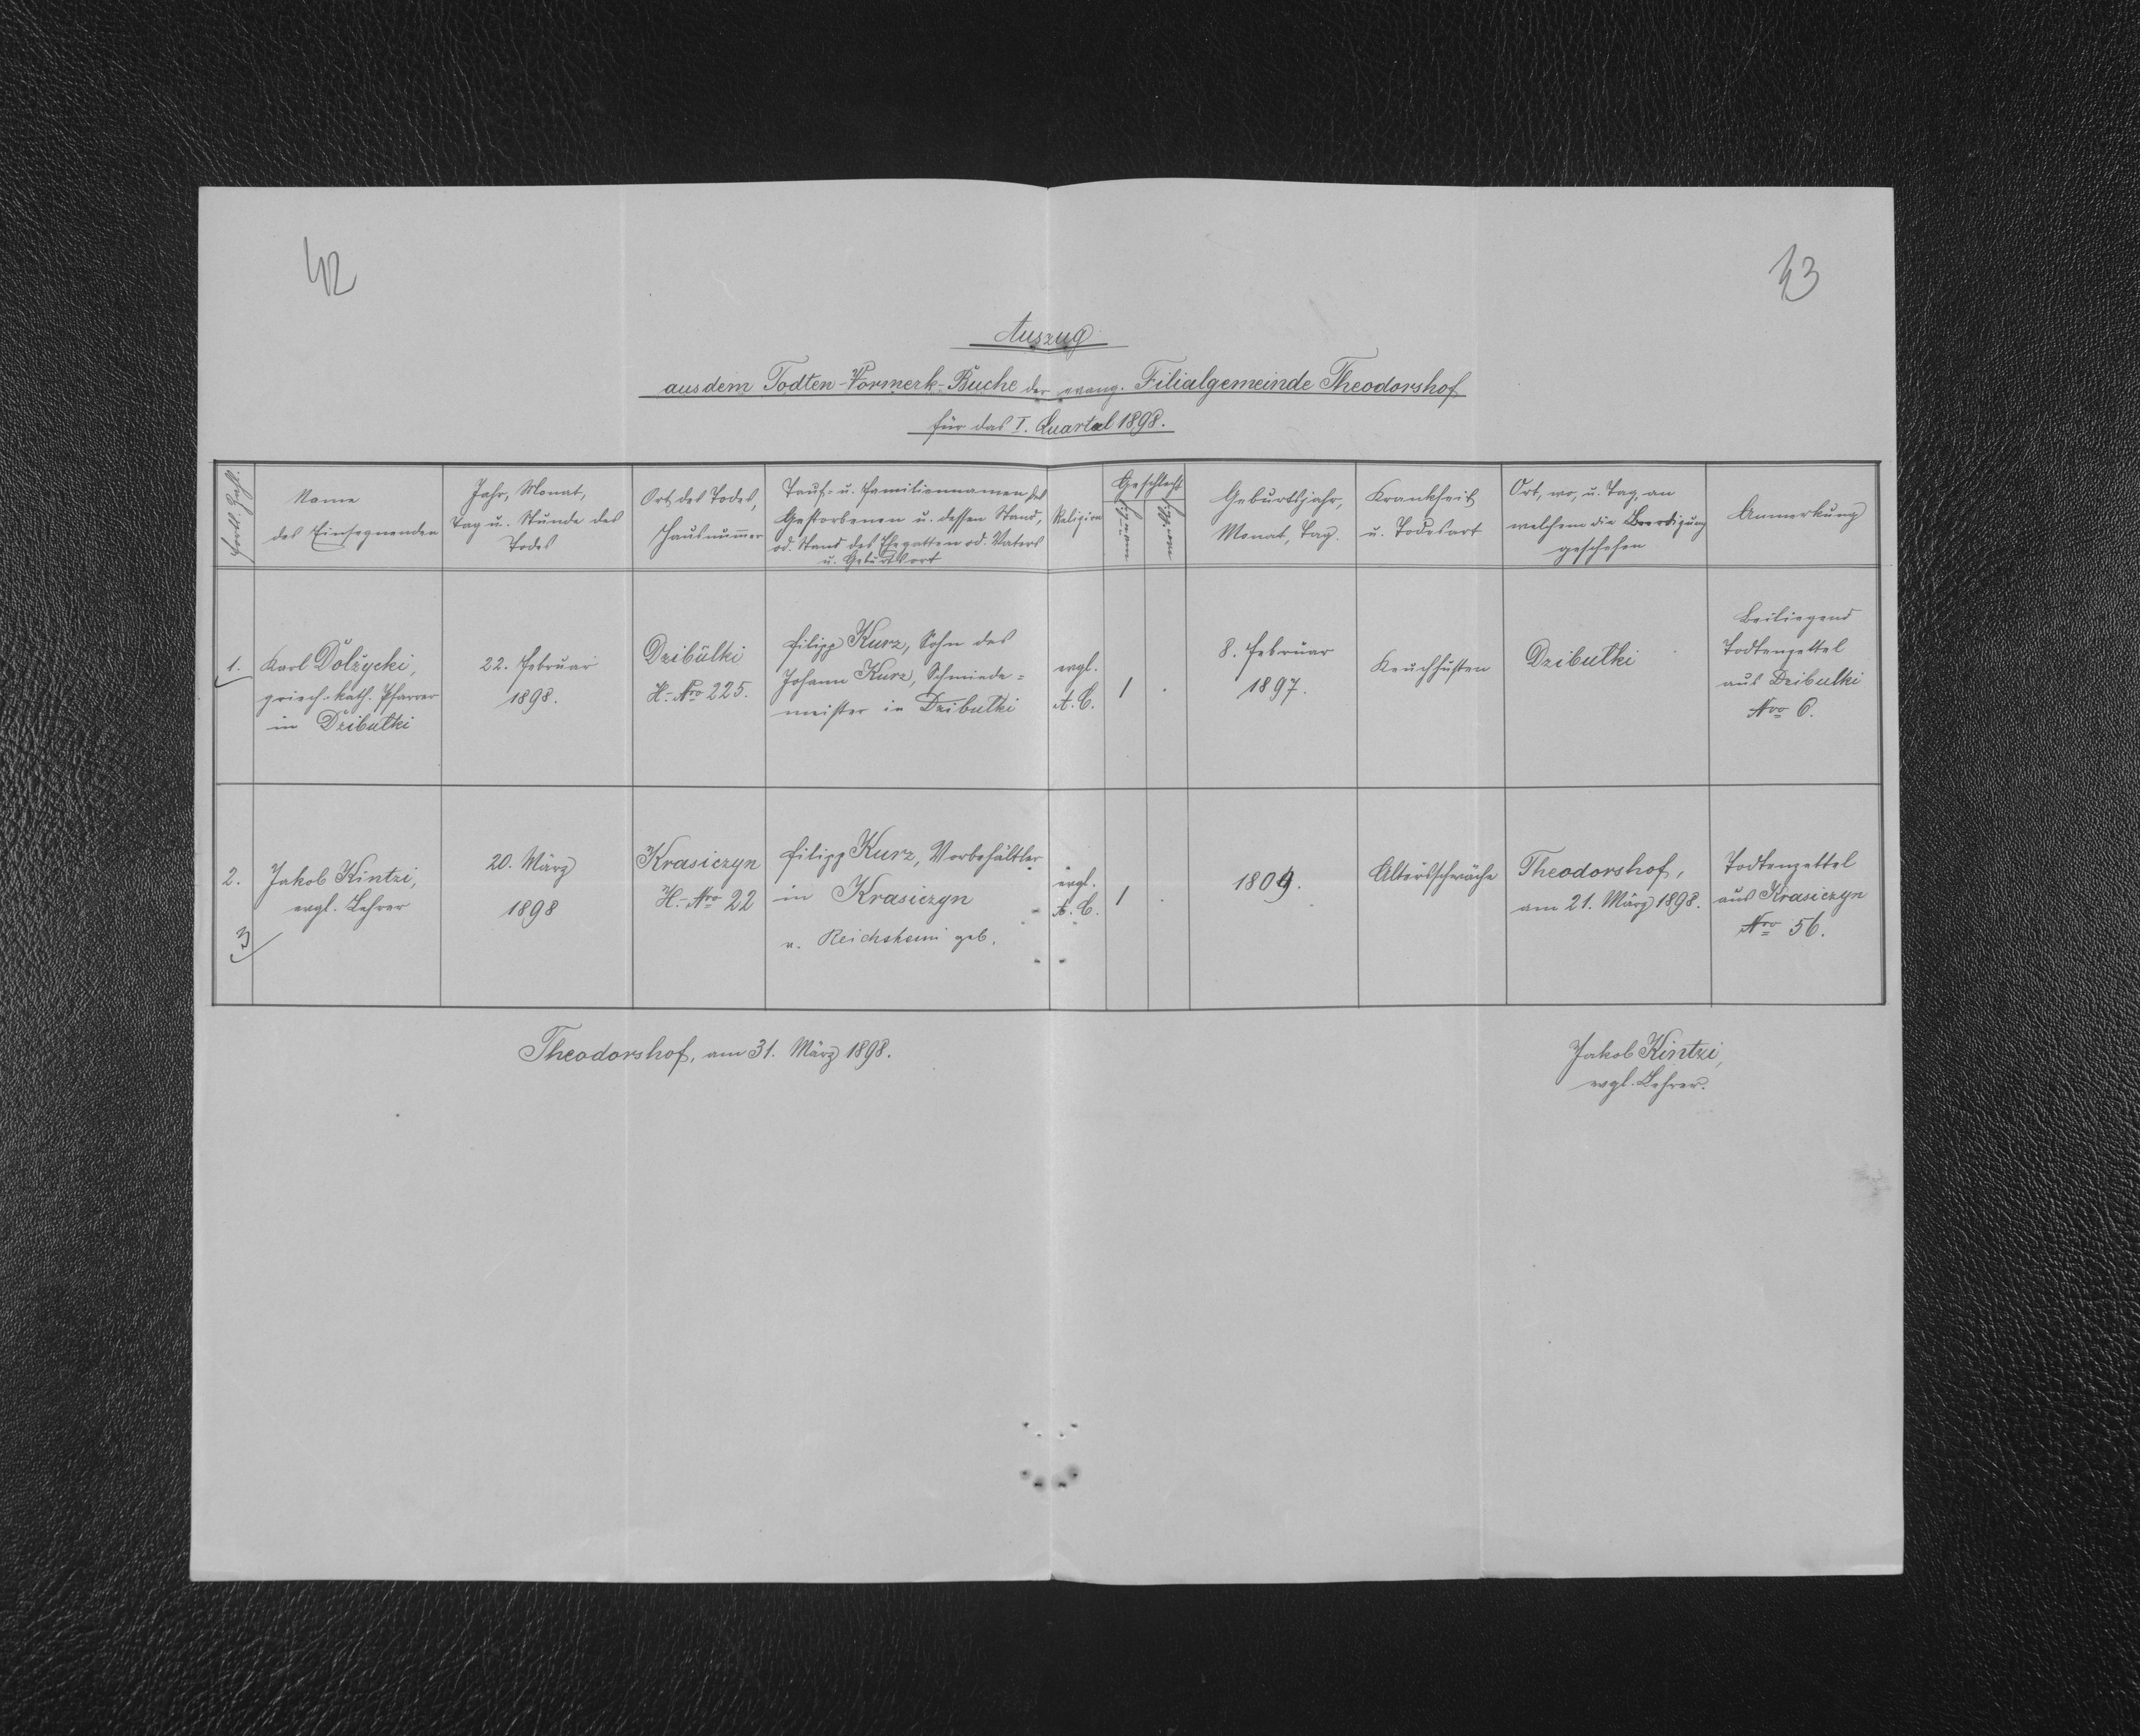 42
43
Auszug
aus dem Todten-Vormerk-Buche der evang. Filialgemeinde Theodorshof
für das I. Quartal 1898.
Fortl. Zahl
Name
des Einsegnenden
Jahr, Monat,
Tag u. Stunde des
Todes
Ort des Todes,
Hausnummer
Tauf- u. Familiennamen des
Gestorbenen u. dessen Stand,
od. Stand des Ehegatten od. Vaters
u. Geburtsort
Religion
Geschlecht
männlich
weiblich
Geburtsjahr,
Monat, Tag.
Krankheit
u. Todesart
Ort, wo, u. Tag, an
welchem die Beerdigung
geschehen
Anmerkung
1.
Karl Dolżycki,
griech.-kath. Pfarrer
in Dzibułki
22. Februar
1898.
Dzibülki
H.-Nro 225.
Filipp Kurz, Sohn des
Johann Kurz, Schmiede=
meister in Dzibułki
evgl.
A. C.
1
.
8. Februar
1897.
Keuchhusten
Dzibułki
Beiliegend
Todtenzettel
aus Dzibulki
Nro 6.
2.
3
Jakob Kintzi,
evgl. Lehrer
20. März
1898
Krasiczyn
H.-Nro 22
Filipp Kurz, Vorbehältler
in Krasiczyn
u. Reichsheim geb.
evgl.
A. C.
1
.
1809.
Altersschwäche
Theodorshof,
am 21. März 1898.
Todtenzettel
aus Krasiczyn
Nro 56.
Theodorshof, am 31. März 1898.
Jakob Kintzi,
evgl. Lehrer.